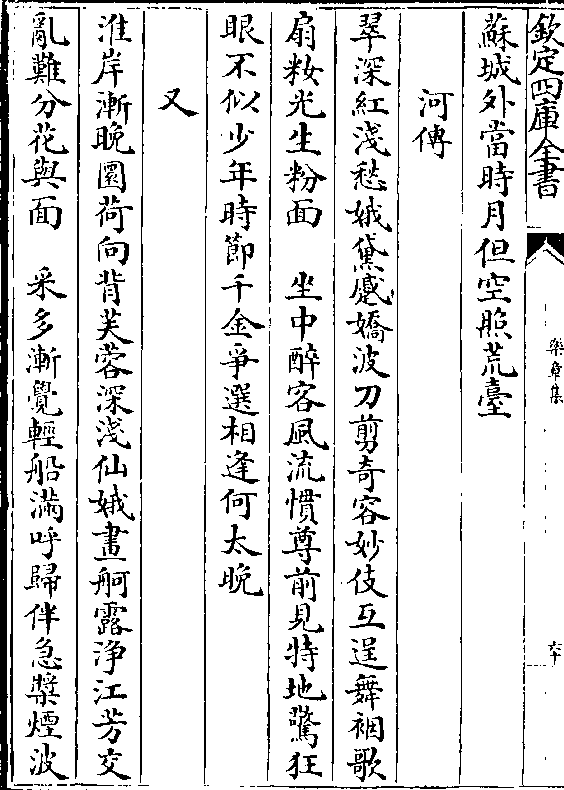 欽定四庫全書
樂章集
六十
蘇城外當時月但空照荒臺
河傳
翠深紅淺愁娥黛蹙嬌波刀剪奇容妙伎互逞舞裀歌
扇粧光生粉面　坐中醉客風流慣尊前見特地驚狂
眼不似少年時節千金爭選相逢何太晚
又
淮岸漸晚圓荷向背芙蓉深淺仙娥畫舸露浄江芳交
亂難分花與面　采多漸覺輕船滿呼歸伴急槳煙波